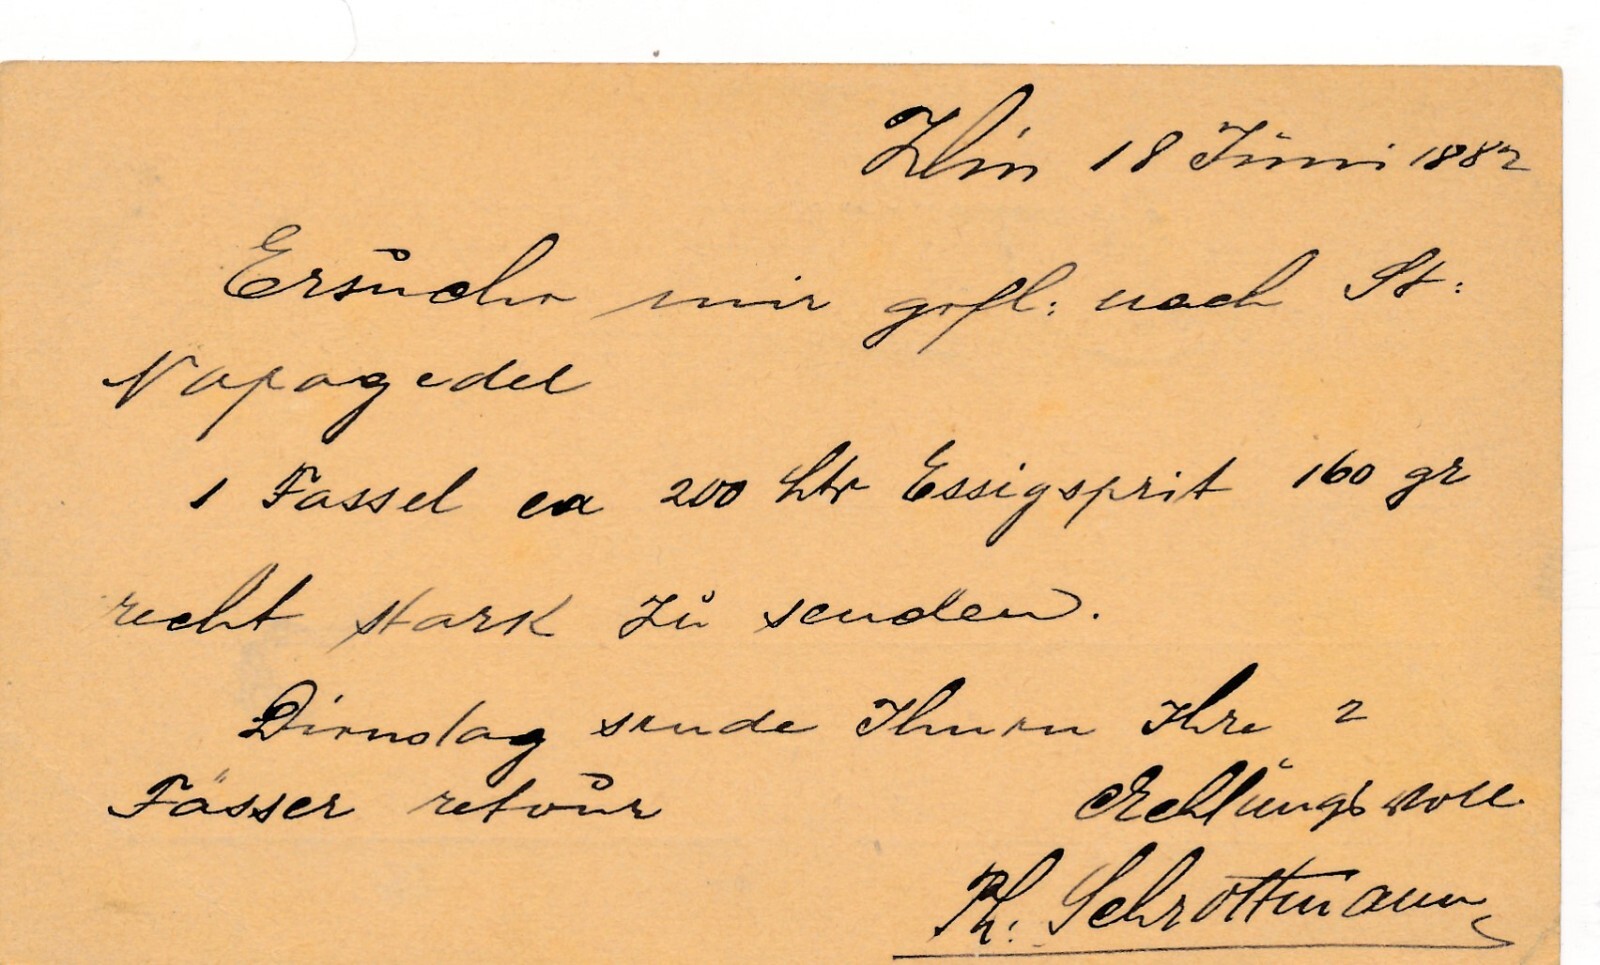 Zlin 18 Juni 1882
Ersuche mir gefl: nach St:
Napagedel
1 Fassel ca 200 Ltr Essigsprit 160 gr
recht stark zu senden.
Dienstag sende Ihnen Ihre 2
Fässer retour
Achtungsvoll
Ph. Schrottmann